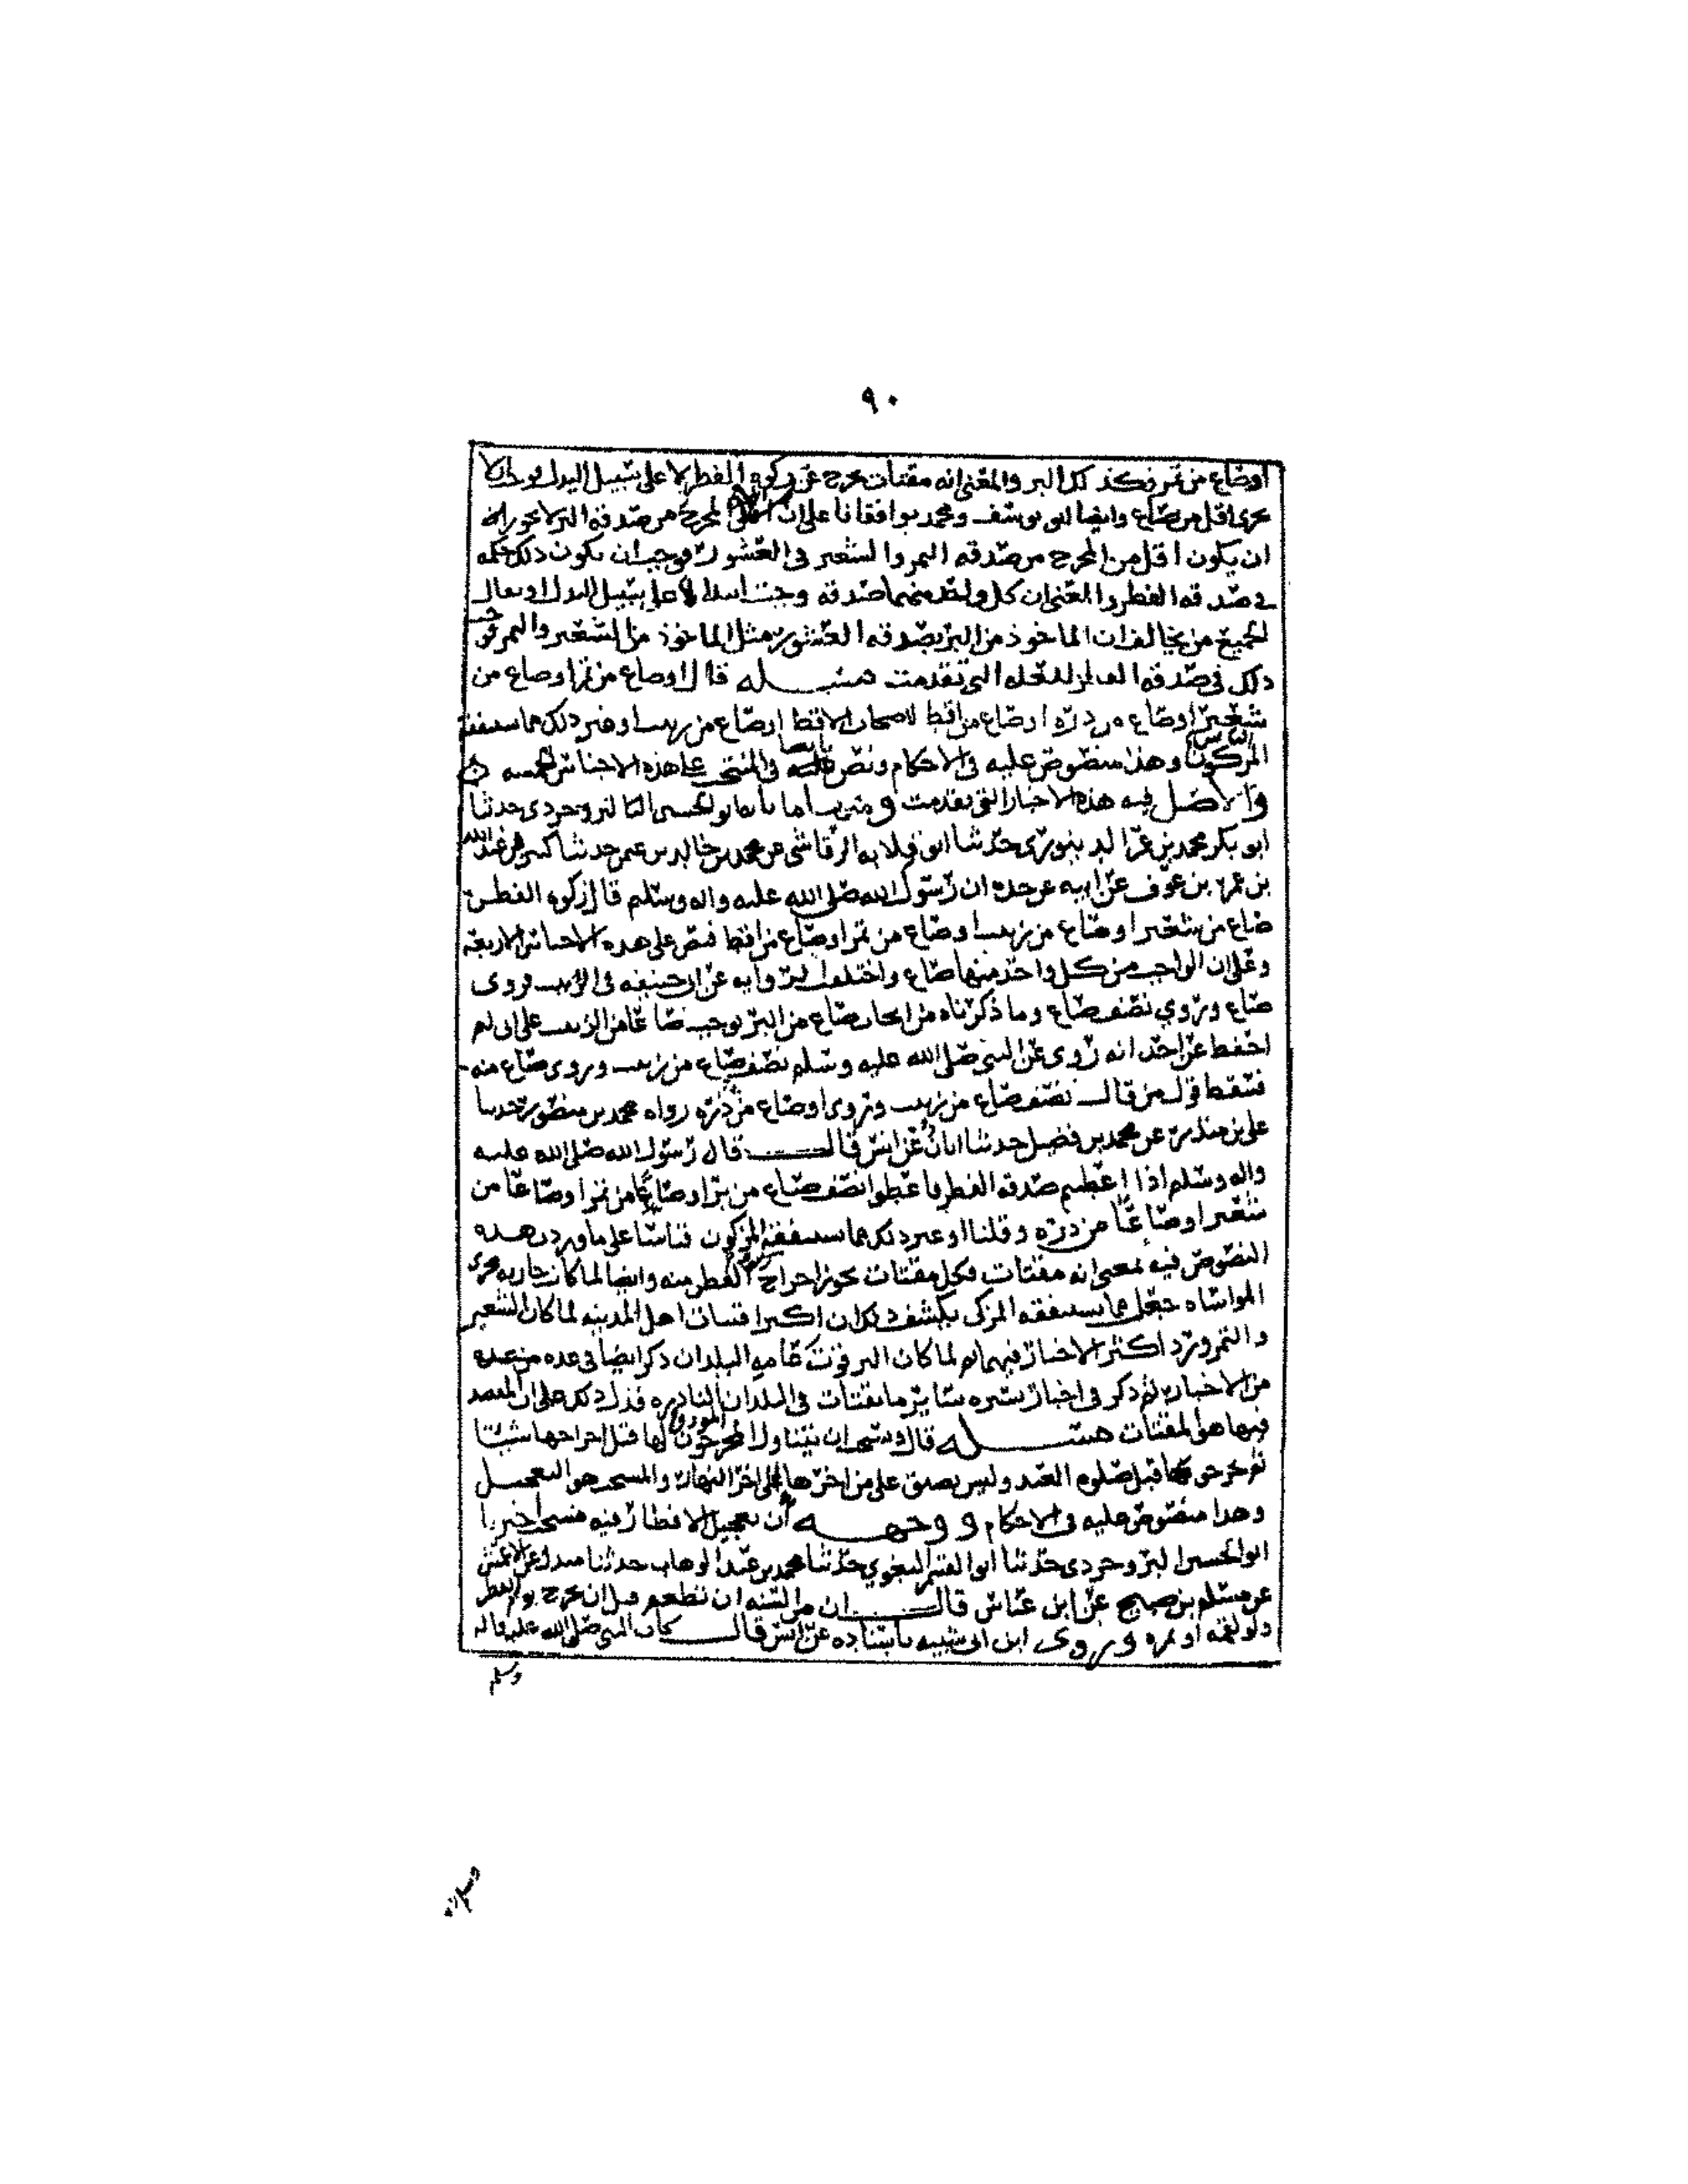 ٩٠
او صاع من تمر فكذلك البر والمعنى انه مقتات يخرج عن زكوة الفطر لا على سبيل البدل فوجب ان لا
يجزى اقل من صاع وايضا ابو يوسف ومحمد يوافقانا على ان المخرج من صدقه البر لا يجوز
ان يكون اقل من المخرج من صدقه التمر والشعير فى العشور فوجب ان يكون ذلك حكمه
فى صدقه الفطر والمعنى ان كل واحد منهما صدقه وجبت ابتدا لا على سبيل البدل او يقال
لجميع من يخالف ان الماخوذ من البر بصدقه العشور مثل الماخوذ من الشعير والتمر فوجب
ذلك فى صدقه الفطر للعله التى تقدمت مسله قال او صاع من تمر او صاع من
شعير او صاع من ذره او صاع من اقط لاصحاب الاقط او صاع من زبيب او غير ذلك مما يستنفقه
المزكون وهذا منصوص عليه فى الاحكام ونص ايضا فى المنتخب على هذه الاجناس الخمسه
والاصل فيه هذه الاخبار التى تقدمت و
ابو بكر محمد بن عمر الدينورى حدثنا ابو قلابه الرقاشى عن محمد بن خالد بن عمر حدثنا كثير بن عبدالله
بن عمر بن عوف عن ابيه عن جده ان رسول الله صلى الله عليه واله وسلم قال زكوه الفطر
صاع من شعير او صاع من زبيب او صاع من تمر او صاع من اقط فنص على هذه الاجناس الاربعه
وعلى ان الواجب من كل واحد منها صاع واختلفت الروايه عن ابى حنيفه فى الزبيب فروى
صاع وروي نصف صاع وما ذكرناه من ايجاب صاع من البر يوجب صاعا من الزبيب على انى لم
احفظ عن احد انه روى عن النبى صلى الله عليه وسلم نصف صاع من زبيب وروى صاع منه
فسقط قول من قال نصف صاع من زبيب وروى او صاع من ذره رواه محمد بن منصور حدثنا
على بن منذر عن محمد بن فضيل حدثنا ابان عن انس قال قال رسول الله صلى الله عليه
واله وسلم اذا اعطيتم صدقه الفطر فاعطوا نصف صاع من بر او صاعا من تمر او صاعا من
شعير او صاعا من ذره وقلنا او غير ذلك مما يستنفقه المزكون قياسا على ما ورد هذه
النصوص فيه بمعنى انه مقتات فكل مقتات يجوز اخراج زكوه الفطر منه وايضا لما كانت جاريه مجرى
المواساه جعل مما يستنفقه المزكى يكشف ذلك ان اكثر اقتيات اهل المدينه لما كان الشعير
والتمر ورد اكثر الاخبار فيهما ثم لما كان البر قوت عامه البلدان ذكر ايضا فى عده من عده
من الاخبار ثم ذكر فى اخبار يسيره سائر ما يقتات فى البلدان النادره فدل ذلك على ان المقصد
فيها هى المقتات مسله قال ويستحب ان يتناول المخرجون لها قبل اخراجها شيئا
ثم يخرجونها قبل صلوه العيد وليس يضيق على من اخرها الى اخر النهار والمستحب هو التعجيل
وهذا منصوص عليه فى الاحكام ووجهه ان تعجيل الافطار فيه مستحب اخبرنا
ابو الحسين البروجردى حدثنا ابو القسم البغوي حدثنا محمد بن عبد الوهاب حدثنا مندل عن الاعمش
عن مسلم بن صبيح عن ابن عباس قال ان من السنه ان تطعم قبل ان تخرج يوم الفطر
ولو لقمه او تمره وروى ابن ابى شيبه باسناده عن انس قال كان النبى صلى الله عليه واله
وسلم